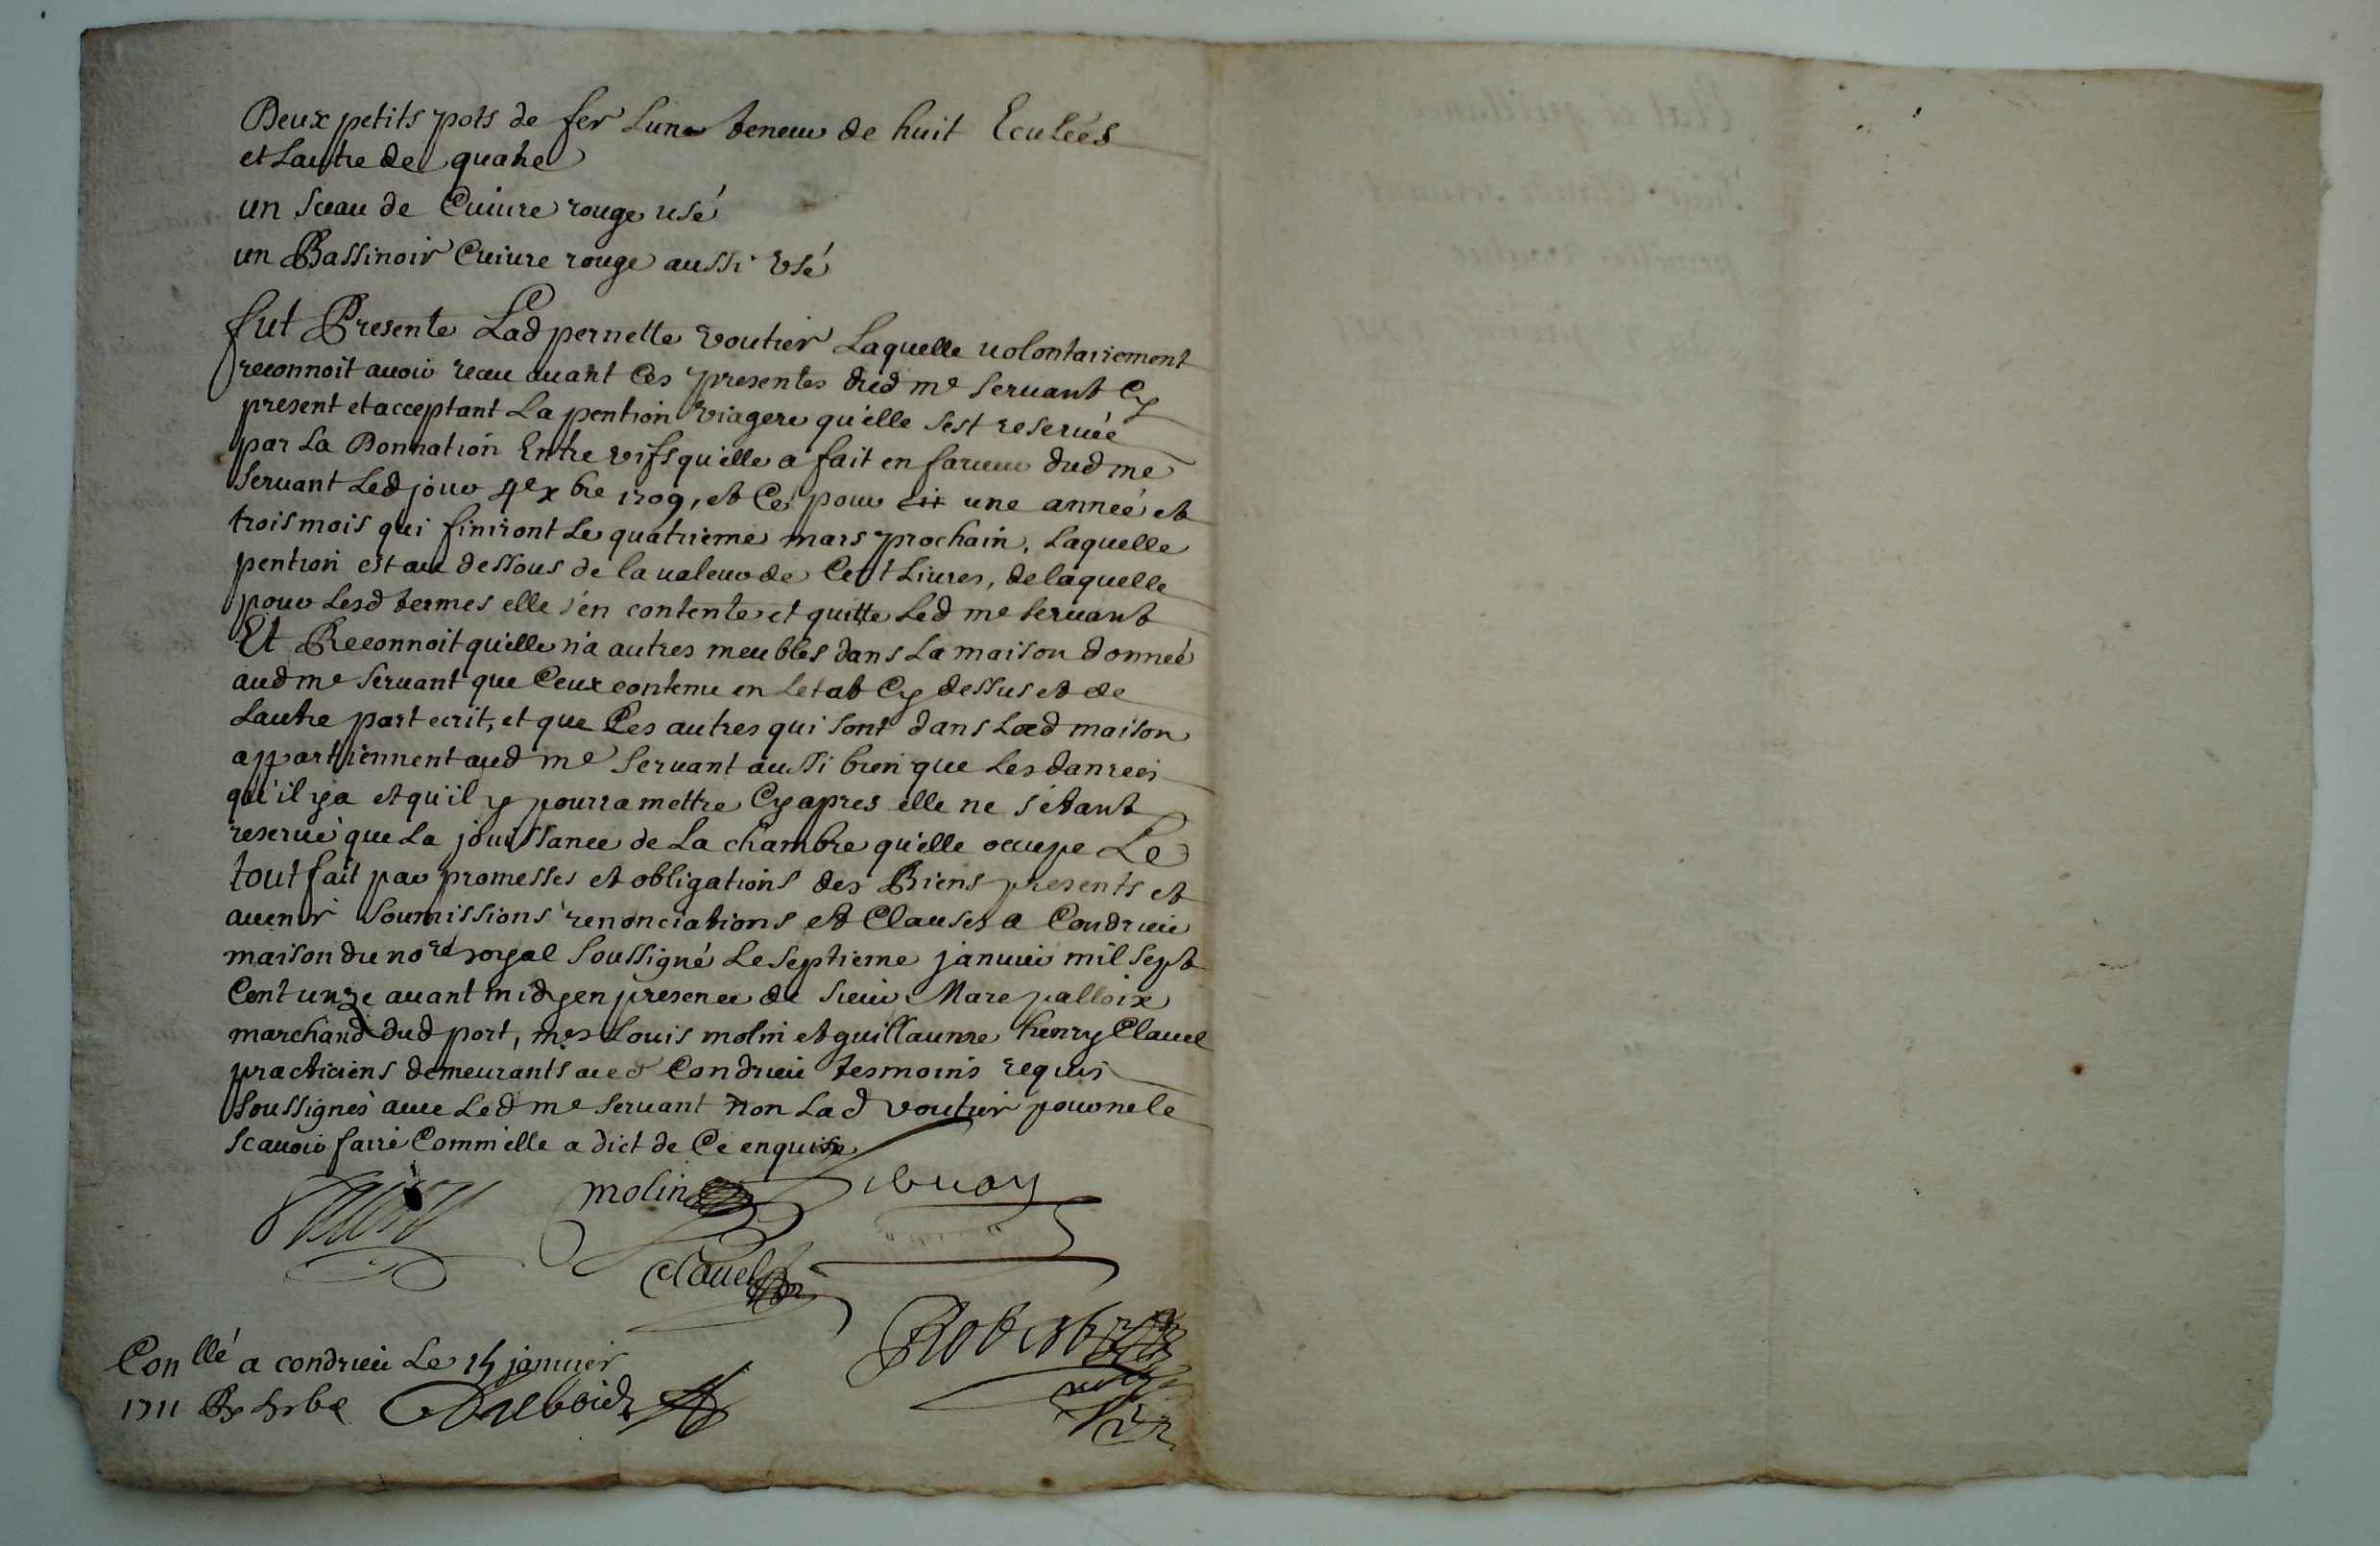 Deux petits pots de fer Lune teneur de huit Eculées
et Lautre de quatre
un Sceau de Cuiure rouge usé
un Bassinoir Cuiure rouge aussi Usé
fut Presente Lad pernette voutier Laquelle uolontairement
reconnoit auoir receu auant Ces presentes dud me Seruant Cy
present et acceptant La pention viagere qu'elle s'est reseruée
par La Donnation Entre vifs qu'elle a fait en faueur dud me
Seruant Led jour 4e xbre 1709, et Ce pour une année et
trois mois qui finiront Le quatrieme mars prochain, Laquelle
pention est au dessous de la ualeur de Cent Liures, de laquelle
pour Lesd termes elle s'en contente et quitte Led me Seruant
Et Reconnoit qu'elle n'a autres meubles dans La maison donnée
aud me Seruant que Ceux contenu en Letat Cy dessus et de
Lautre part ecrit, et que Les autres qui sont dans Lad maison
appartiennent aud me Seruant aussi bien que Les danrees
qu'il y a et qu'il y pourra mettre Cy apres elle ne s'étant
reserué que La jouissance de La chambre qu'elle occupe Le
tout fait par promesses et obligations des Biens presents et
auenir Soumissions renonciations et Clauses a Condrieu
maison du nore royal Soussigné Le Septieme januier mil Sept
Cent unze auant midy en presence de Sieur Marc palloix
marchand dud port, mes Louis molin et guillaume henry Clauel
practiciens demeurants aud Condrieu tesmoins requis
Soussignés auec Led me Seruant non Lad voutier pour ne le
Scauoir faire Comm'elle a dict de Ce enquise
molin Seruan
Clauel
Robert
Conllé a condrieu Le 15 januier
1711 Dubois